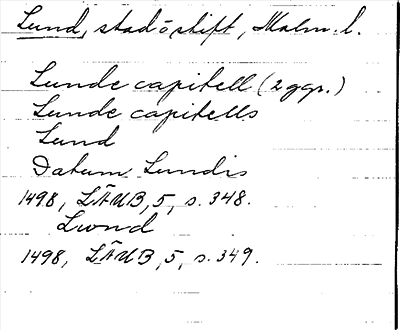 Lund, stad o stift, Malm. l.
Lunde capitell (2 ggr.)
Lunde capitells
Lund
Datum Lundis
1498, LÄUB, 5, s. 348.
Lwnd
1498, LÄUB, 5, s. 349.